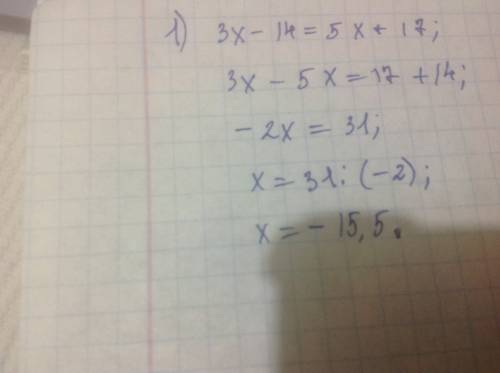 1) 3x - 14 = 5x + 17;
3x - 5x = 17 + 14;
- 2x = 31;
x = 31 : (-2);
x = - 15,5.